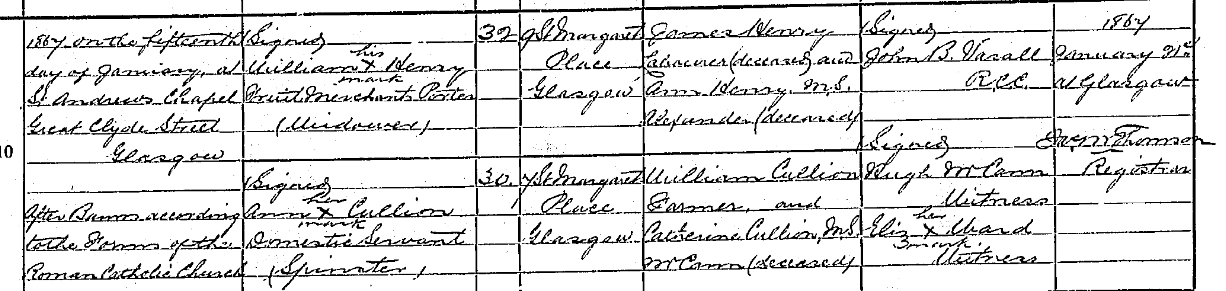 10
1867 on the fifteenth
day of January, at
St Andrews Chapel
Great Clyde Street
Glasgow
After Banns according
to the Forms of the
Roman Catholic Church
(Signed)
his
William x Henry
mark
Fruit Merchants Porter
(Widower)
(Signed)
her
Ann x Cullion
mark
Domestic Servant
(Spinster)
32
30
9 St Margaret
Place
Glasgow
7 St Margaret
Place
Glasgow
James Henry
Labourer (deceased) and
Ann Henry, M.S.
Alexander (deceased)
William Cullion
Farmer, and
Catherine Cullion, M.S.
McCann (deceased)
(Signed)
John B. Vassall
R.C.C.
(Signed)
Hugh McCann
Witness
her
Eliz x Ward
mark
Witness
1867
January 21st
At Glasgow
Thomson
Registrar